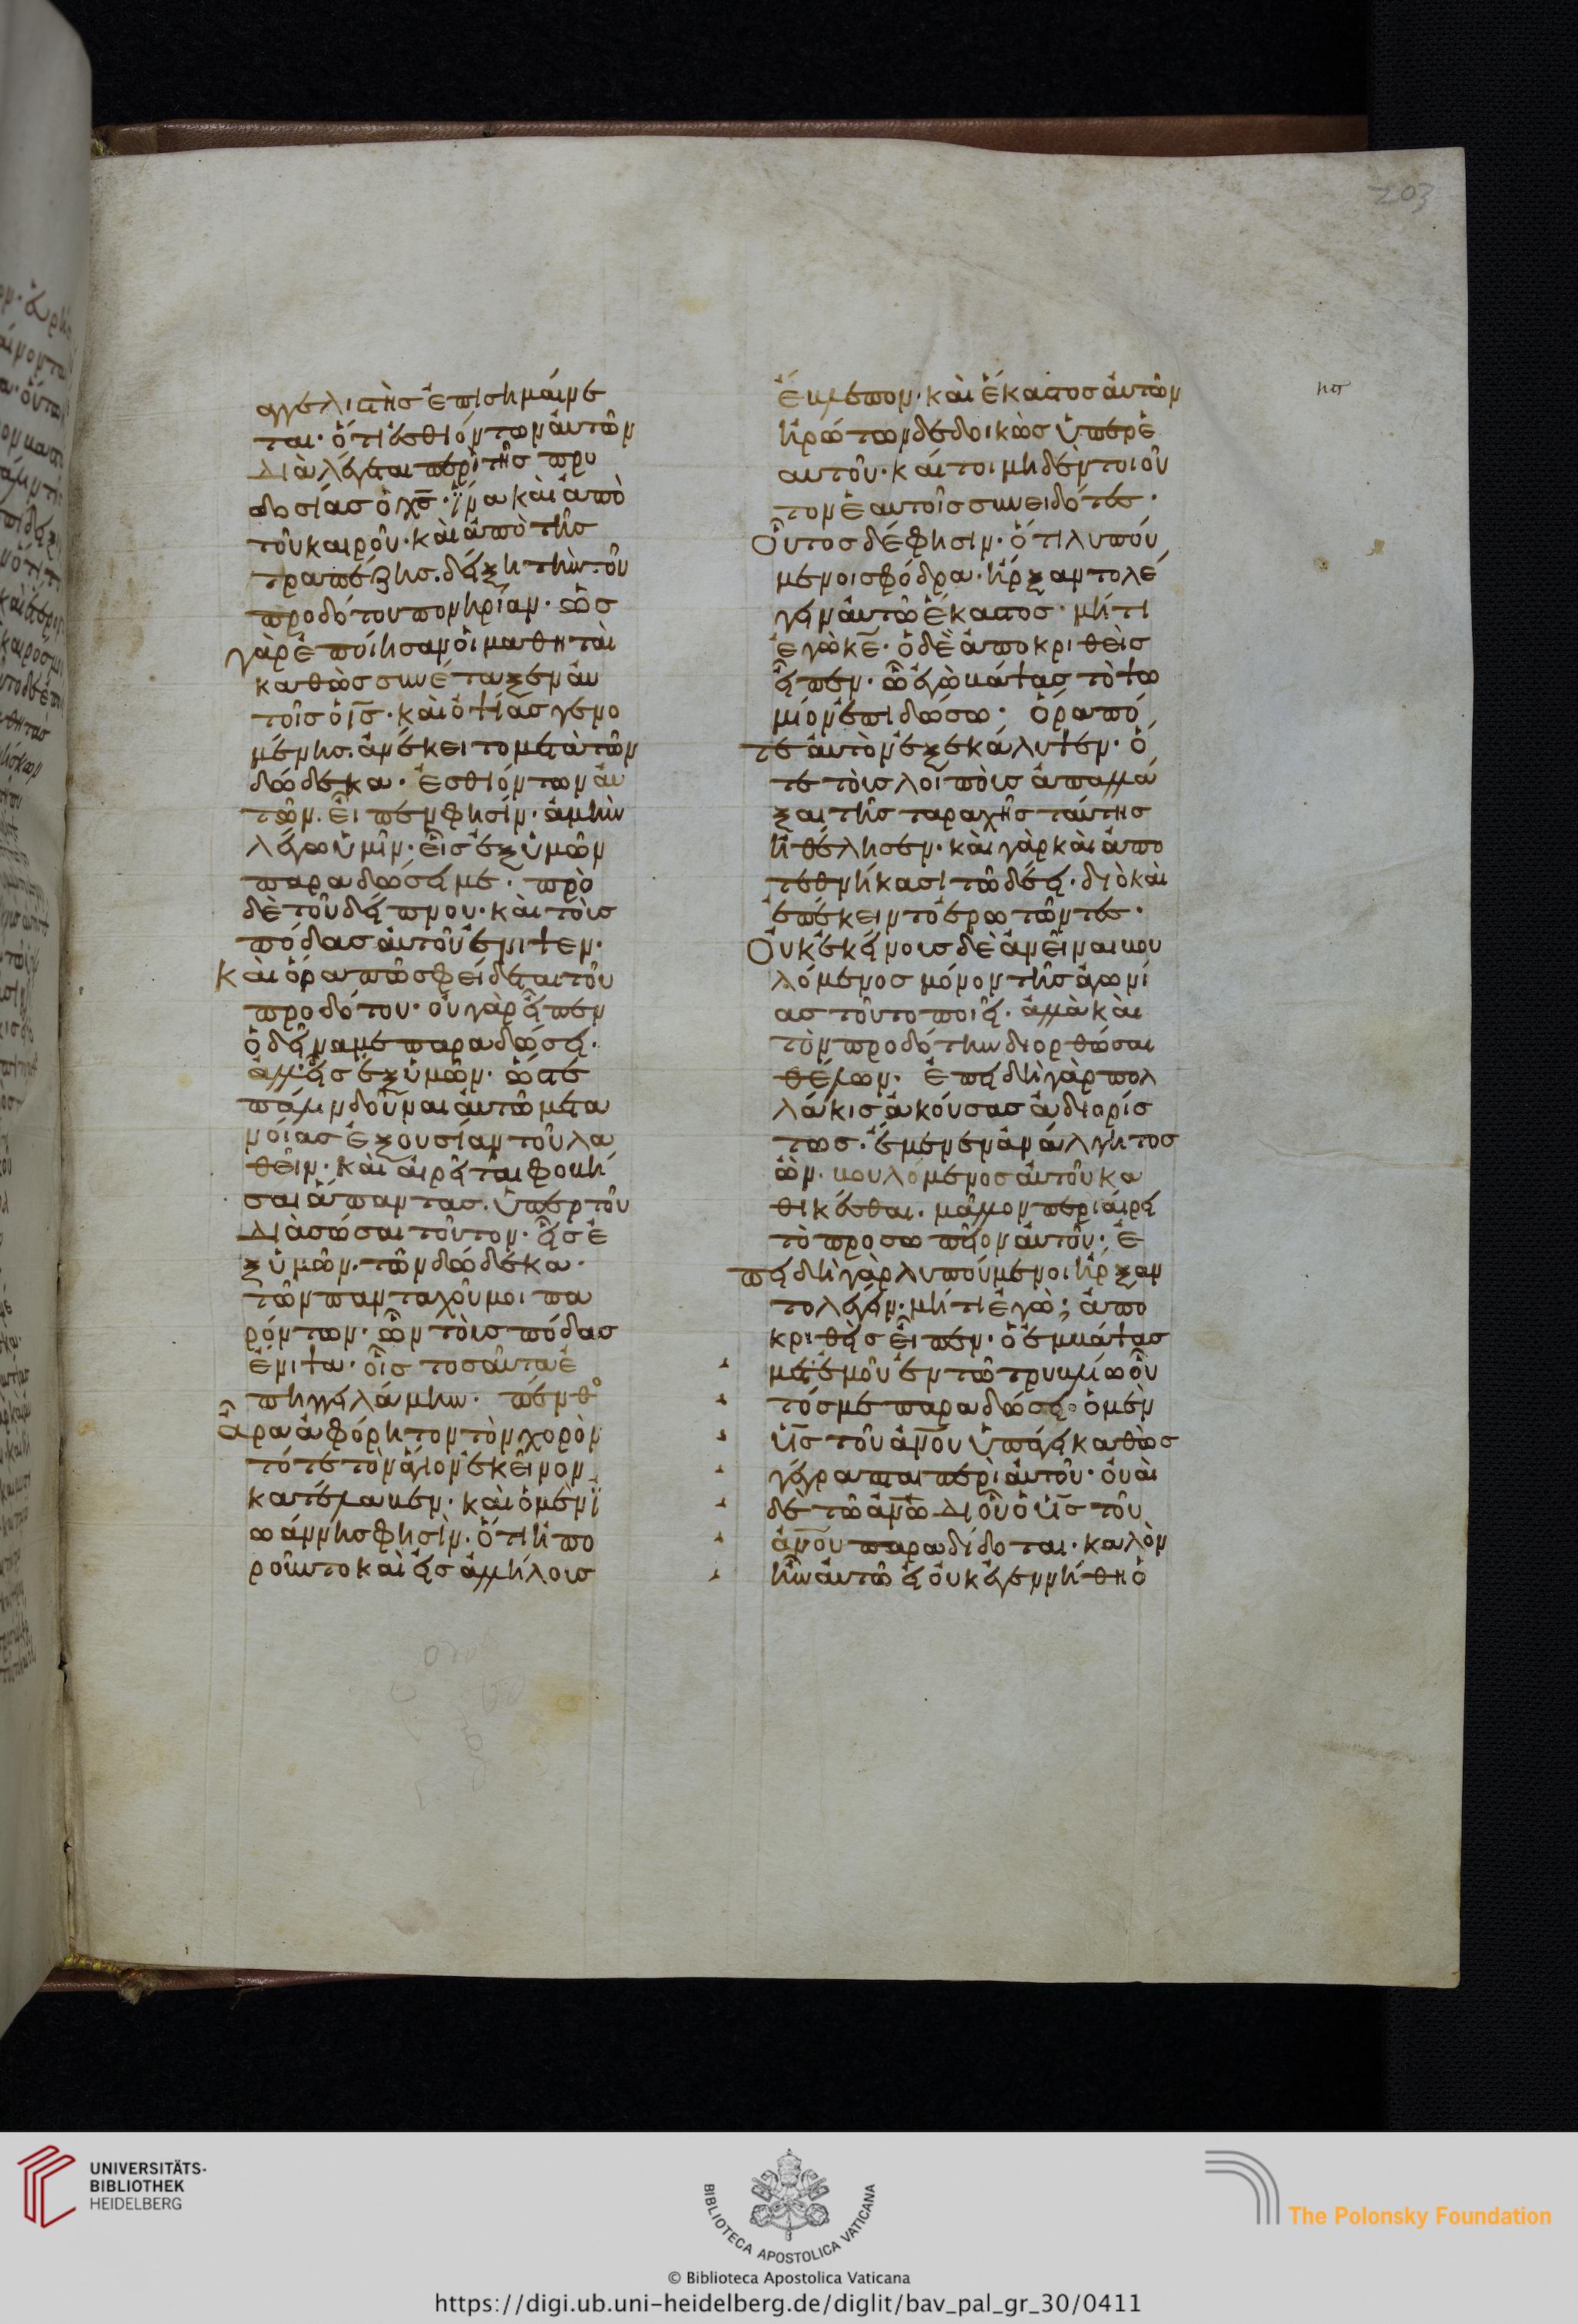 203
αγγελιστὴς ἐπισημαίνε
ται· ὅτι ἐσθιόντων αὐτῶν
διαλέγεται περὶ τῆς προ
δοσίας ὁ χς̅· ἵνα καὶ ἀπὸ
τοῦ καιροῦ· καὶ ἀπὸ τῆς
τραπέζης. δείξη τὴν τοῦ
προδότου πονηρίαν· ὡς
γὰρ ἐποίησαν οἱ μαθηταὶ
καθὼς συνέταξεν αὐ
τοῖς ὁ ις̅· καὶ ὀψίας γενο
μένης. ἀνέκειτο μετὰ τῶν
δώδεκα· ἐσθιόντων αὐ
τῶν. εἶπεν φησίν· ἀμὴν
λέγω ὑμῖν· εἷς ἐξ ὑμῶν
παραδώσει με· πρὸ
δὲ τοῦ δείπνου· καὶ τοὺς
πόδας αὐτοῦ ἔνιψεν·
Καὶ ὅρα πῶς φείδεται τοῦ
προδότου· οὐ γὰρ εἶπεν
ὁ δεῖνα με παραδώσει·
ἀλλ' εἷς ἐξ ὑμῶν· ὥστε
πάλιν δοῦναι αὐτῶ μετα
νοίας ἐξουσίαν τοῦ λα
θεῖν· καὶ αἱρεῖται φοβῆ
σαι ἅπαντας. ὑπὲρ τοῦ
διασῶσαι τοῦτον· εἷς ἐ
ξ ὑμῶν· τῶν δώδεκα·
τῶν πανταχοῦ μοι πα
ρόντων· ὧν τοὺς πόδας
ἔνιψα· οἷς τοσαῦτα ἐ
πηγγειλάμην· πένθο
ἄρα ἀφόρητον τὸν χορὸν
τότε τὸν ἅγιον ἐκεῖνον
κατέλαβεν· καὶ ὁ μὲν ἰ
ωάννης φησὶν· ὅτι ἠπο
ροῦντο καὶ εἰς ἀλλήλους
ἔβλεπον· καὶ ἕκαστος αὐτῶν
ἠρώτων δεδοικὼς ὑπὲρ ἑ
αυτοῦ· καίτοι μηδὲν τοιοῦ
τον ἑαυτοῖς συνειδότες·
Οὗτος δέ φησιν· ὅτι λυπού
μενοι σφόδρα· ἤρξαντο λέ
γειν αὐτῶ ἕκαστος· μήτι
ἐγὼ κε̅· ὁ δὲ ἀποκριθεὶς
εἶπεν· ὧ ἐγὼ βάψας τὸ ψω
μίον ἐπιδώσω· ὅρα πό
τε αὐτὸν ἐξεκάλυψεν· ὅ
τε τοὺς λοιποὺς ἀπαλλά
ξαι τῆς ταραχῆς ταύτης
ἠθέλησεν· καὶ γὰρ καὶ ἀπο
τεθνήκασι τῶ δέει· διὸ καὶ
ἐπέκειντο ἐρωτῶντες·
Οὐκ ἐκείνους δὲ ἀνεῖναι βου
λόμενος μόνον τῆς ἀγωνί
ας τοῦτο ποιεῖ· ἀλλὰ καὶ
τὸν προδότην διορθῶσαι
θέλων· ἐπειδὴ γὰρ πολ
λάκις ἀκούσας ἀδιορίς
τως· ἔμενεν ἀνάλγητος
ὢν· βουλόμενος αὐτοῦ κα
θικέσθαι· μᾶλλον περιαιρεῖ
τὸ προσωπεῖον αὐτοῦ· ἐ
πειδὴ γὰρ λυπούμενοι ἤρξαν
το λέγειν· μήτι ἐγώ; ἀπο
κριθεὶς εἶπεν· ὁ ἐμβάψας
μετ' ἐμοῦ ἐν τῶ τρυβλίω οὗ
τός με παραδώσει· ὁ μὲν
υἱς̅ τοῦ ἀνου̅ ὑπάγει καθὼς
γέγραπται περὶ αὐτοῦ· οὐαὶ
δὲ τῶ ἀνω̅ δι' οὗ ὁ υἱς̅ τοῦ
ἀνου̅ παραδίδοται· καλὸν
ἦν αὐτῶ εἰ οὐκ ἐγεννήθη ὁ
UNIVERSITÄTS-
BIBLIOTHEK
HEIDELBERG
BIBLIOTECA APOSTOLICA VATICANA
© Biblioteca Apostolica Vaticana
The Polonsky Foundation
https://digi.ub.uni-heidelberg.de/diglit/bav_pal_gr_30/0411